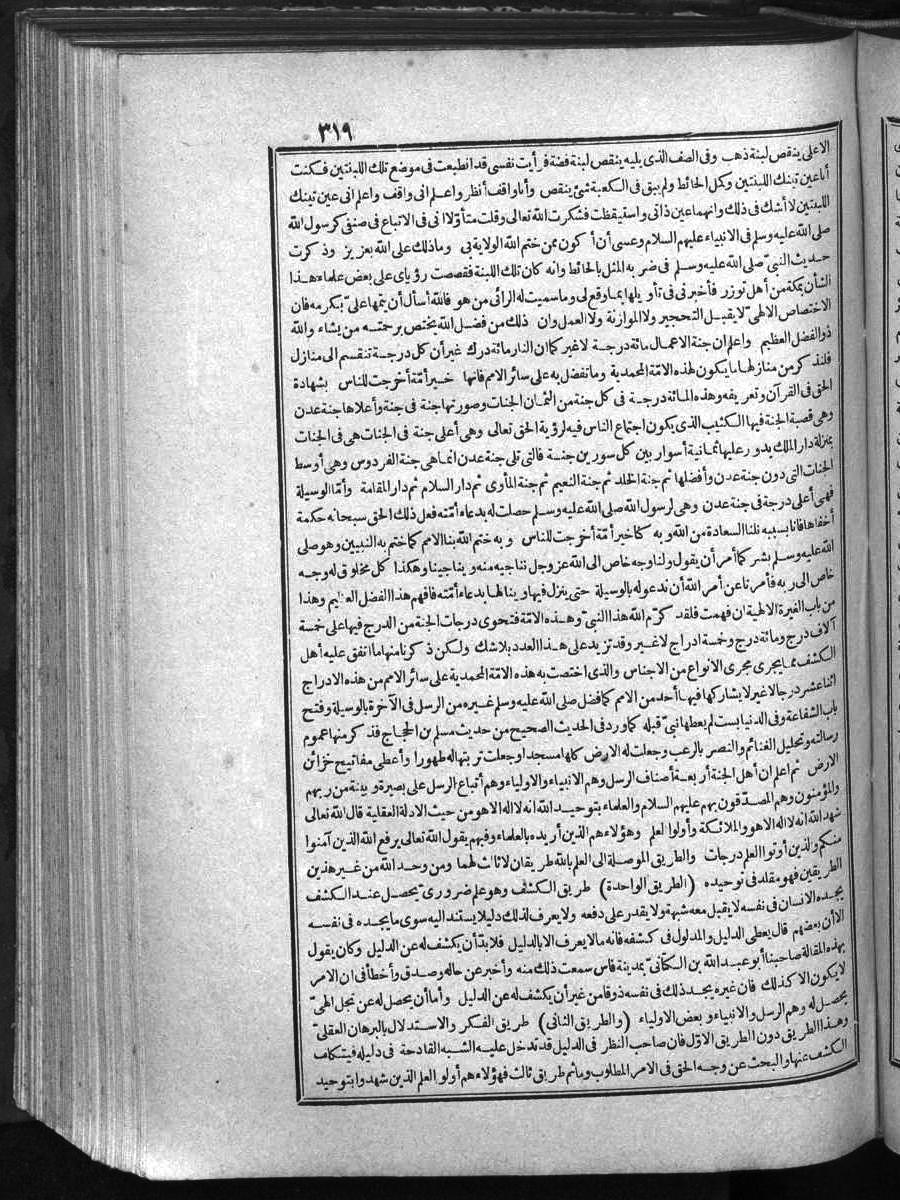 ٣١٩
الاعلى ينقص لبنة ذهب وفى الصف الذى يليه ينقص لبنة فضة فرأيت نفسى قد انطبعت فى موضع تلك اللبنتين فكنت
أنا عين تينك اللبنتين وكمل الحائط ولم يبق فى الكعبة شئ ينقص وأنا واقف أنظر واعلم انى واقف واعلم انى عين تينك
اللبنتين لا أشك فى ذلك وانهما عين ذاتى واستيقظت فشكرت الله تعالى وقلت متأولا انى فى الاتباع فى صنفى كرسول الله
صلى الله عليه وسلم فى الانبياء عليهم السلام وعسى أن أكون ممن ختم الله الولاية بى وماذلك على الله بعزيز وذكرت
حديث النبى صلى الله عليه وسلم فى ضربه المثل بالحائط وانه كان تلك اللبنة فقصصت رؤياى على بعض علماء هذا
الشأن بمكة من أهل توزر فأخبرنى فى تأويلها بما وقع لى وما سميت له الرائى من هو فالله أسأل أن يتمها علىّ بكرمه فان
الاختصاص الالهى لا يقبل التحجير ولا الموازنة ولا العمل وان ذلك من فضل الله يختص برحمته من يشاء والله
ذو الفضل العظيم واعلم ان جنة الاعمال مائة درجة لا غير كما ان النار مائة درك غير أن كل درجة تنقسم الى منازل
فلنذكر من منازلها ما يكون لهذه الامّة المحمدية وما تفضل به على سائر الامم فانها خير أمّة أخرجت للناس بشهادة
الحق فى القرآن وتعريفه وهذه المائة درجة فى كل جنة من الثمان الجنات وصورتها جنة فى جنة وأعلاها جنة عدن
وهى قصبة الجنة فيها الكثيب الذى يكون اجتماع الناس فيه لرؤية الحق تعالى وهى أعلى جنة فى الجنات هى فى الجنات
بمنزلة دار الملك يدور عليها ثمانية أسوار بين كل سورين جنة فالتى تلى جنة عدن انما هى جنة الفردوس وهى أوسط
الجنات التى دون جنة عدن وأفضلها ثم جنة الخلد ثم جنة النعيم ثم جنة المأوى ثم دار السلام ثم دار المقامة وأمّا الوسيلة
فهى أعلى درجة فى جنة عدن وهى لرسول الله صلى الله عليه وسلم حصلت له بدعاء أمّته فعل ذلك الحق سبحانه حكمة
أخفاها فانا بسببه نلنا السعادة من الله وبه كنا خير أمّة أخرجت للناس وبه ختم الله بنا الامم كما ختم به النبيين وهو صلى
الله عليه وسلم بشر كما أمر أن يقول ولنا وجه خاص الى الله عز وجل نناجيه منه ويناجينا وهكذا كل مخلوق له وجه
خاص الى ربه فأمرنا عن أمر الله أن ندعو له بالوسيلة حتى ينزل فيها وينالها بدعاء أمّته فافهم هذا الفضل العظيم وهذا
من باب الغيرة الالهية ان فهمت فلقد كرّم الله هذا النبىّ وهذه الامّة فتحوى درجات الجنة من الدرج فيها على خمسة
آلاف درج ومائة درج وخمسة ادراج لا غير وقد تزيد على هذا العدد بلا شك ولكن ذكرنا منها ما اتفق عليه أهل
الكشف مما يجرى مجرى الانواع من الاجناس والذى اختصت به هذه الامّة المحمدية على سائر الامم من هذه الادراج
اثنا عشر درجا لا غير لا يشاركها فيها أحد من الامم كما فضل صلى الله عليه وسلم غيره من الرسل فى الآخرة بالوسيلة وفتح
باب الشفاعة وفى الدنيا بست لم يعطها نبىّ قبله كما ورد فى الحديث الصحيح من حديث مسلم بن الحجاج فذكر منها عموم
رسالته وتحليل الغنائم والنصر بالرعب وجعلت له الارض كلها مسجدا وجعلت تربتها له طهورا وأعطى مفاتيح خزائن
الارض ثم اعلم ان أهل الجنة أربعة أصناف الرسل وهم الانبياء والاولياء وهم أتباع الرسل على بصيرة وبينة من ربهم
والمؤمنون وهم المصدّقون بهم عليهم السلام والعلماء بتوحيد الله انه لا اله الا هو من حيث الادلة العقلية قال الله تعالى
شهد الله انه لا اله الا هو والملائكة وأولوا العلم وهؤلاء هم الذين أريده بالعلماء وفيهم يقول الله تعالى يرفع الله الذين آمنوا
منكم والذين أوتوا العلم درجات والطريق الموصلة الى العلم بالله طريقان لا ثالث لهما ومن وحد الله من غير هذين
الطريقين فهو مقلد فى توحيده (الطريق الواحدة) طريق الكشف وهو علم ضرورى يحصل عند الكشف
يجده الانسان فى نفسه لا يقبل معه شبهة ولا يقدر على دفعه ولا يعرف لذلك دليلا يستند اليه سوى ما يجده فى نفسه
الا أن بعضهم قال يعطى الدليل والمدلول فى كشفه فانه ما لا يعرف الا بالدليل فلا بدّ أن يكشف له عن الدليل وكان يقول
بهذه المقالة صاحبنا أبو عبد الله بن الكتّانىّ بمدينة فاس سمعت ذلك منه وأخبر عن حاله وصدق وأخطأ فى ان الامر
لا يكون الا كذلك فان غيره يجد ذلك فى نفسه ذوقا من غير أن يكشف له عن الدليل وأما أن يحصل له عن تجل الهىّ
يحصل له وهم الرسل والانبياء وبعض الاولياء (والطريق الثانى) طريق الفكر والاستدلال بالبرهان العقلىّ
وهذا الطريق دون الطريق الاوّل فان صاحب النظر فى الدليل قد تدخل عليه الشبه القادحة فى دليله فيتكلف
الكشف عنها والبحث عن وجه الحق فى الامر المطلوب وما ثم طريق ثالث فهؤلاء هم أولو العلم الذين شهدوا بتوحيد